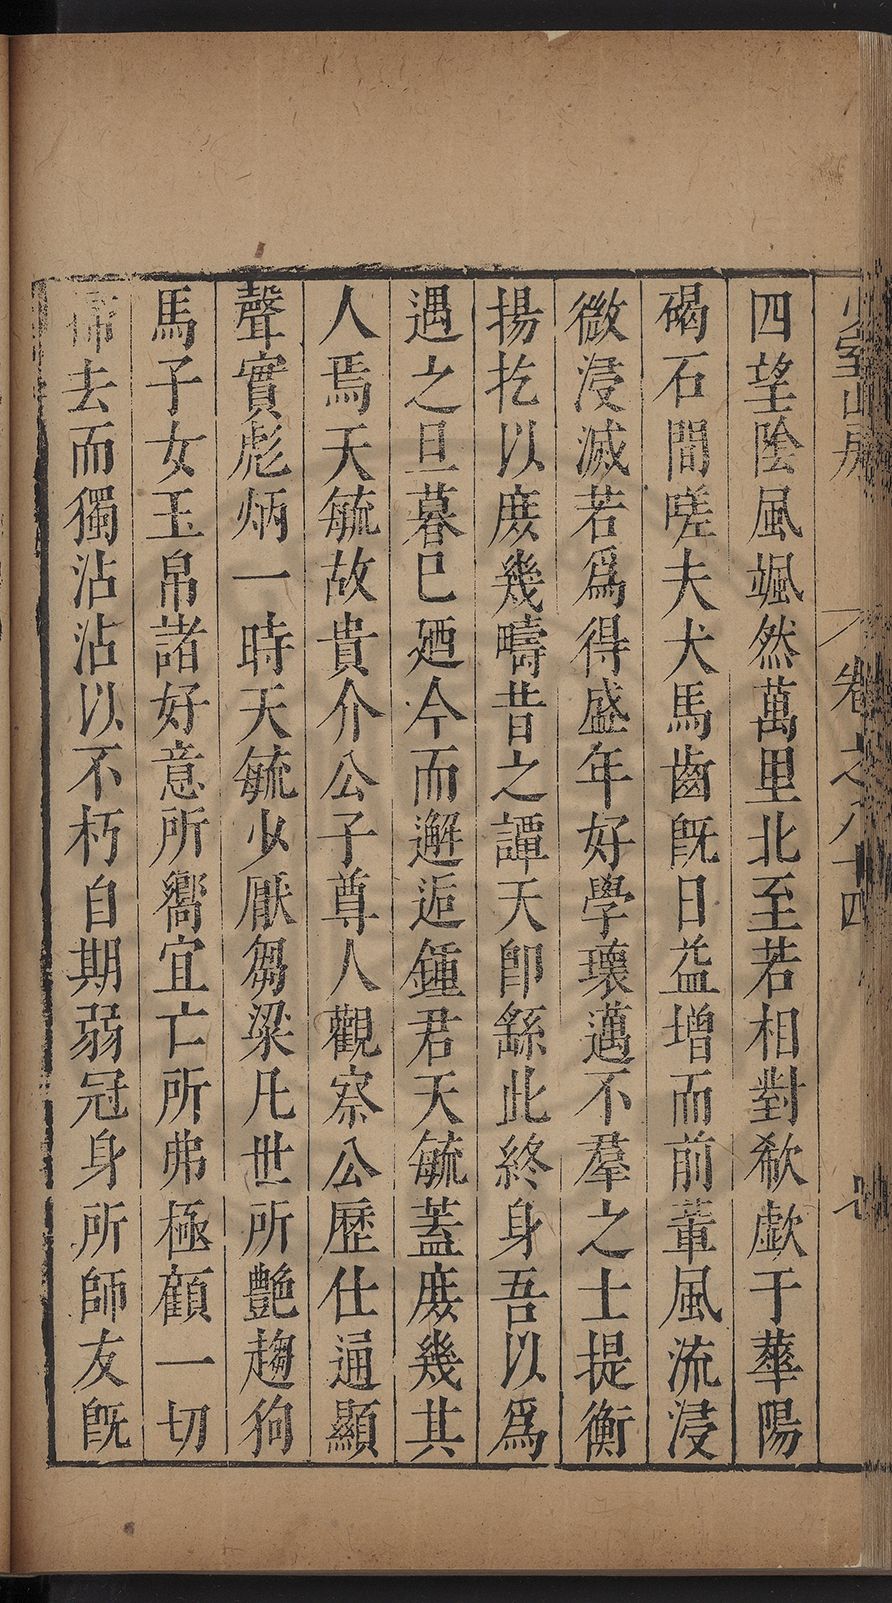 四望陰風颯然萬里北至若相對欷歔于華陽
碣石間嗟夫犬馬齒旣日益增而前輩風流浸
微浸滅若爲得盛年好學瓌邁不羣之士提衡
揚扢以庻幾疇昔之譚天卽繇此終身吾以爲
遇之旦暮巳廼今而邂逅鍾君天毓蓋庻幾其
人焉天毓故貴介公子尊人觀察公歷仕通顯
聲實彪炳一時天毓少厭芻梁凡世所艷趨狗
馬子女玉帛諸好意所嚮宜亡所弗極顧一切
去而獨沾沾以不朽自期弱冠身所師友旣
少室山房 卷之八十四